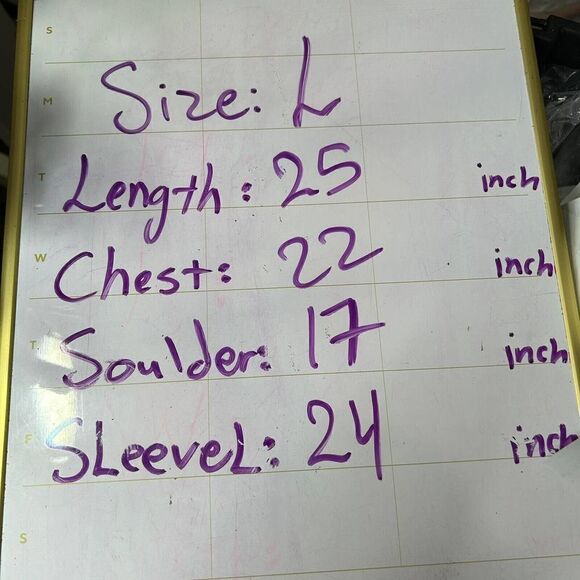 S
M
Size: L
T
Length: 25 inch
W
Chest: 22 inch
T
Soulder: 17 inch
F
SLeeveL: 24 inch
S